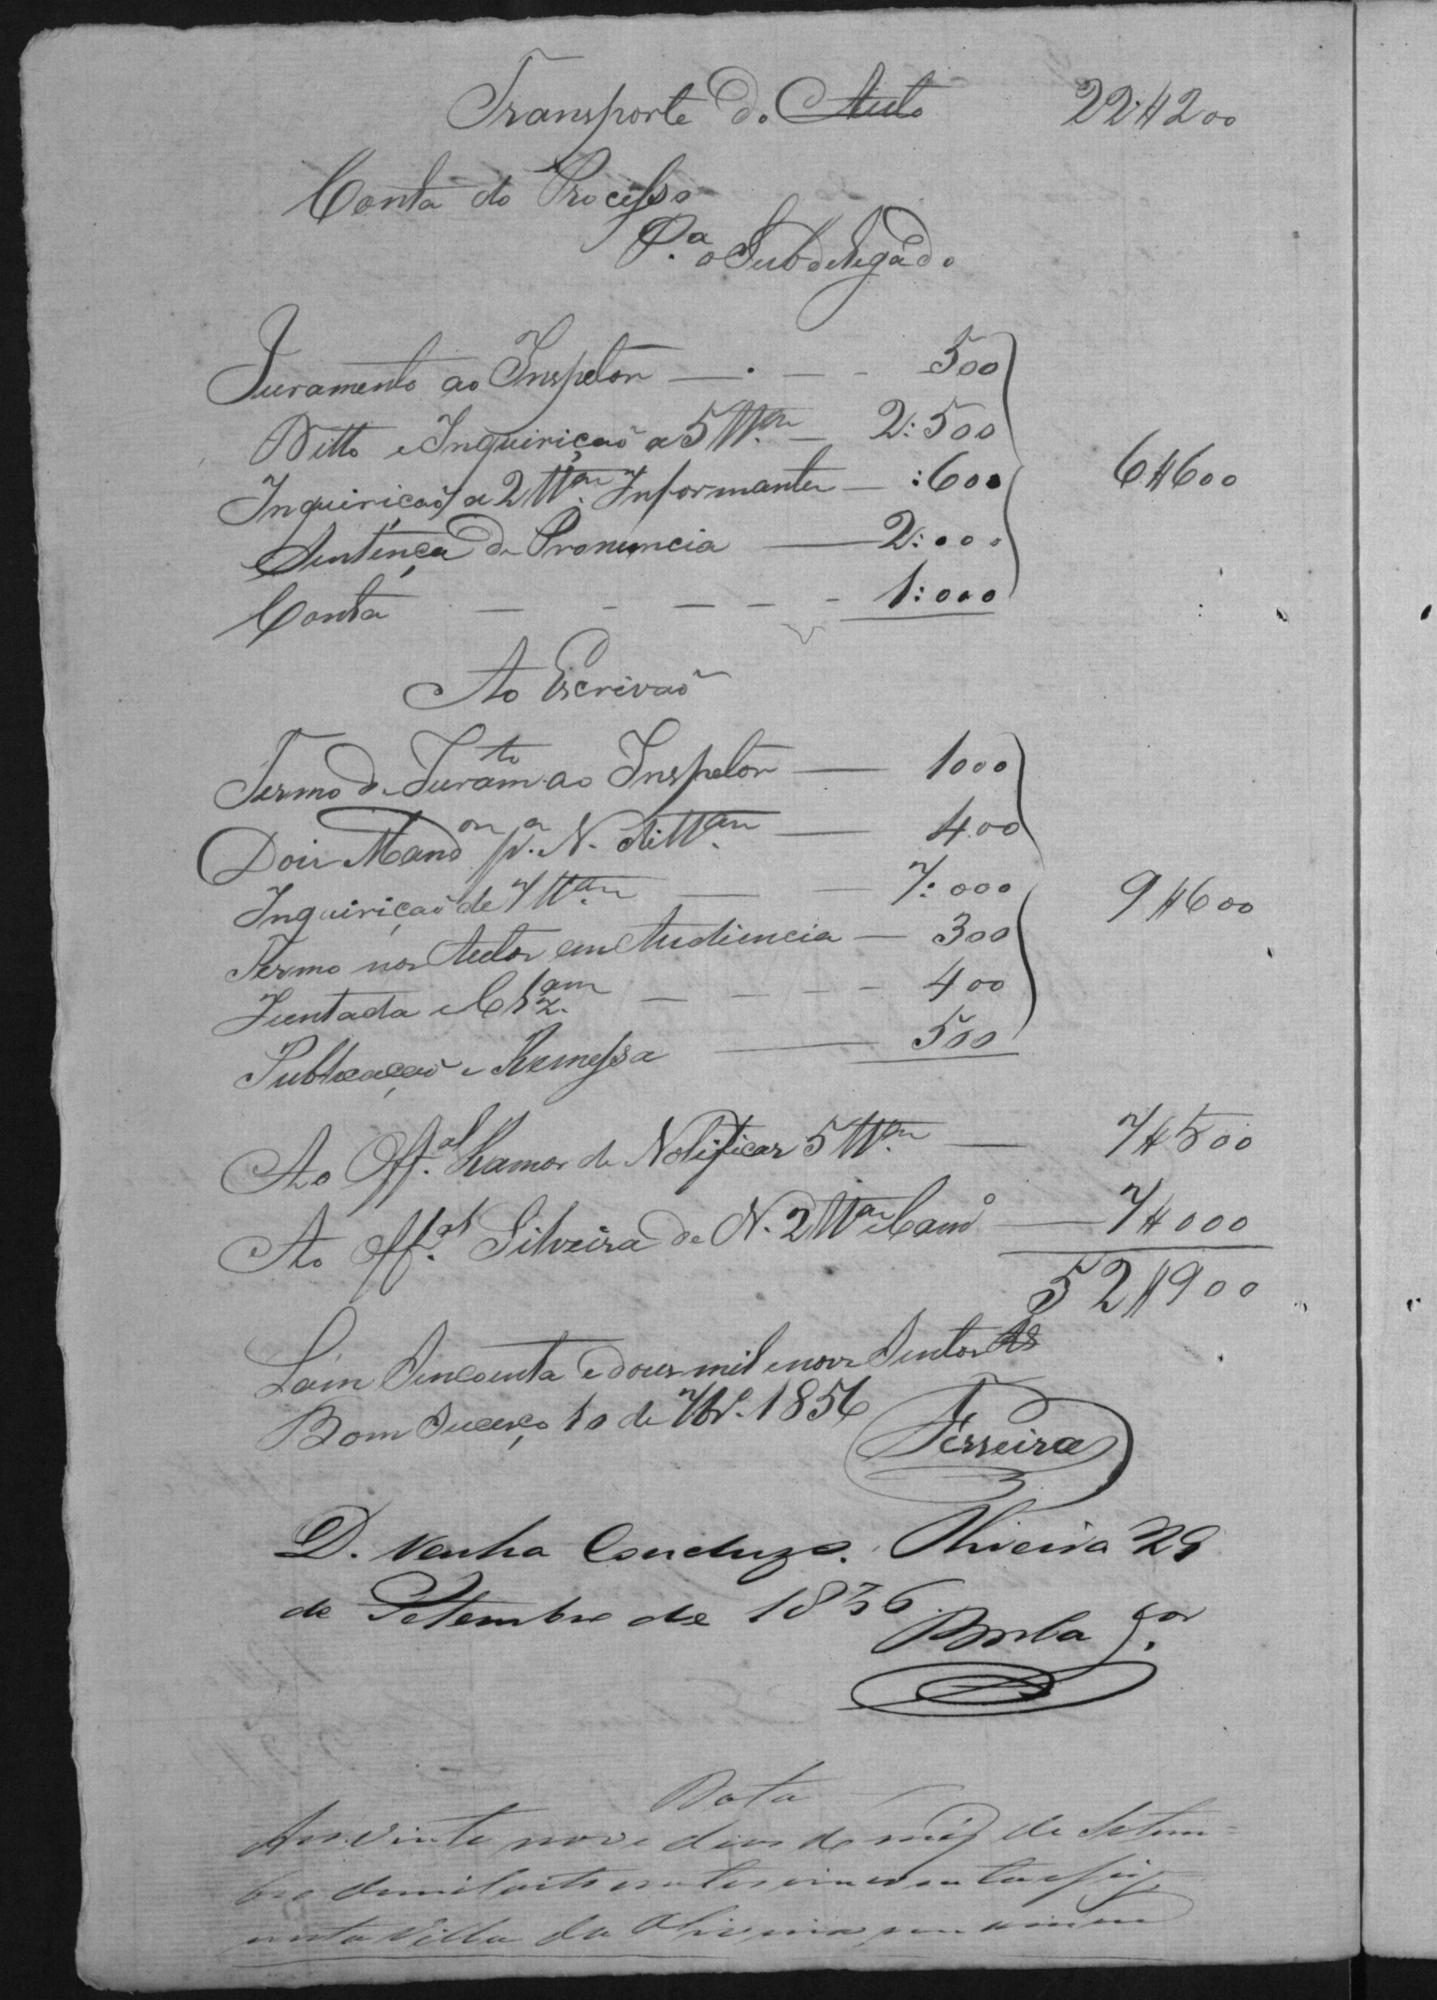 Transporte do Auto 22#200
Conta do Processo
Pa. o Subdelegado
Juramento ao Inspetor — . — - 500
Ditto e Inquirição a 5 ttas. — 2:500
Inquirição a 2 ttas. Informantes — :600
6#600
Sentença de Pronuncia — 2:000
Conta — - — - - 1:000
Ao Escrivaõ
Termo de Juramto. ao Inspetor — 1000
Dois Mandos pa. N. de ttas. — 400
Inquirição de 7 ttas. — — 7:000
9#600
Termo nos Autos em Audiencia — 300
Juntada e Clzam. — - - - - 400
Publicação e Remessa — 500
Ao Offal. Ramos de Notificar 5 ttas. — 7#500
Ao Offal. Silveira de N. 2 ttas e Camo — 7#000
52#900
Sam Sincoenta e dous mil e nove Sentos Rs
Bom Sucesço 10 de 7br.o 1856
Ferreira
D. Venha Concluzo. Oliveira 29
de Setembro de 1856.
Borba Jor.
Data
Aos vinte nove dias do mêz de Setem=
bro de mil oito centos cincoenta e seis
nesta Villa da Oliveira, em